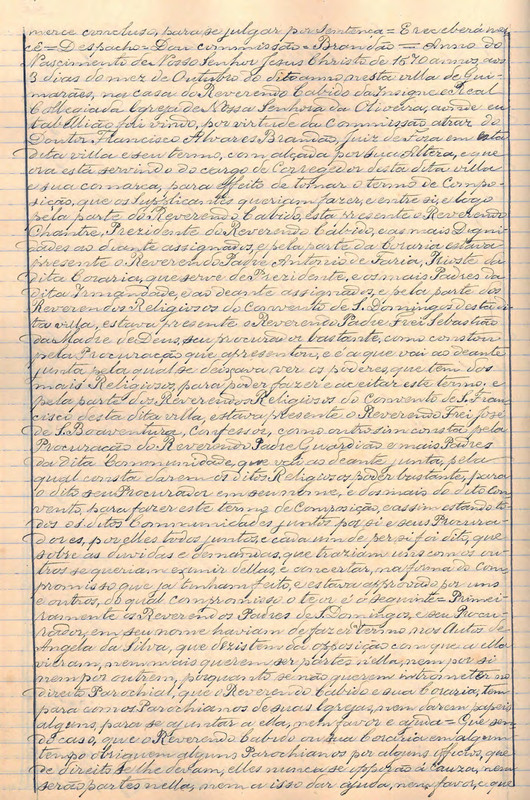 merce concluso, para se julgar por Sentença = E receberá mer
cê = Despacho = Dou commissão = Brandão = Anno do
Nascimento de Nosso Senhor Jesus Christo de 1670 annos, aos
3 dias do mez de Outubro do dito anno nesta villa de Gui-
marães, na casa do Reverendo Cabido da Insigne e Real
Collegiada Egreja de Nossa Senhora da Oliveira, aonde eu
tabellião fui vindo, por virtude da Commissão atraz do
Doutor Francisco Alvares Brandão, Juiz de Fora em esta
dita villa e seu termo, com alçada por Sua Alteza, e que
ora está servindo do cargo de Corregedor desta dita villa
e sua comarca, para effeito de tomar o termo de Compo-
sição, que os Supplicantes queriam fazer, e entre si, e logo
pela parte do Reverendo Cabido, está presente o Reverendo
Chantre, Prezidente do Reverendo Cabido, e as mais Digni-
dades ao diante assignados, e pela parte da Coraria estava
presente o Reverendo Padre Antonio de Faria, Prioste da
dita Coraria, que serve de Prezidente, e os mais Padres da
dita Irmandade, ao deante assignados, e pela parte dos
Reverendos Religiosos do Convento de S. Domingos desta di-
ta villa, estava presente o Reverendo Padre Frei Sebastião
da Madre de Deus, seu procurador bastante, como constou
pela Procuração que apresentou, e é a que vai ao deante
junta pela qual se deixava ver os poderes, que tem dos
mais Religiosos, para poder fazer e aceitar este termo; e
pela parte dos Reverendos Religiosos do Convento de S. Fran-
cisco desta dita villa, estava presente o Reverendo Frei José
de S. Boaventura, Confessor, como outro sim consta pela
Procuração do Reverendo Padre Guardião e mais Padres
da dita Communidade, que vai ao deante junta, pela
qual consta darem os ditos Religiosos poder bastante, para
o dito seu Procurador em seu nome, e dos mais do dito con-
vento, para fazer este termo de Composição, e assim estando to-
dos os ditos Communidades juntos por si e seus Procura-
dores, por elles todos juntos, e cada um de per si foi dito, que
sobre as duvidas e demandas, que traziam uns com os ou-
tros se queriam eximir dellas, e concertar, na forma do com
promisso que já tinham feito, e estava approvado por uns
e outros, do qual compromisso o teor é o seguinte = Primei-
ramente os Reverendos Padres de S. Domingos, e seu Procu-
rador, em seu nome haviam de fazer termo nos Autos de
Angela da Silva, que dezistem da opposição com que a ella
vieram, nem mais querem ser partes nella, nem por si
nem por outrem, porquanto se não querem intrometer no
direito Parochial, que o Reverendo Cabido e sua Coraria, tem
para com os Parochianos de suas Egrejas, nem darem papeis
alguns, para se ajuntar a ella, nem favor e ajuda = Que sen-
do caso, que o Reverendo Cabido ou sua Coraria em algum
tempo obriguem alguns Parochianos por alguns officios, que
de direito se lhe devam, elles nunca se opporão á Cauza, nem
serão partes nella, nem a isso dar ajuda, nem favor, e que